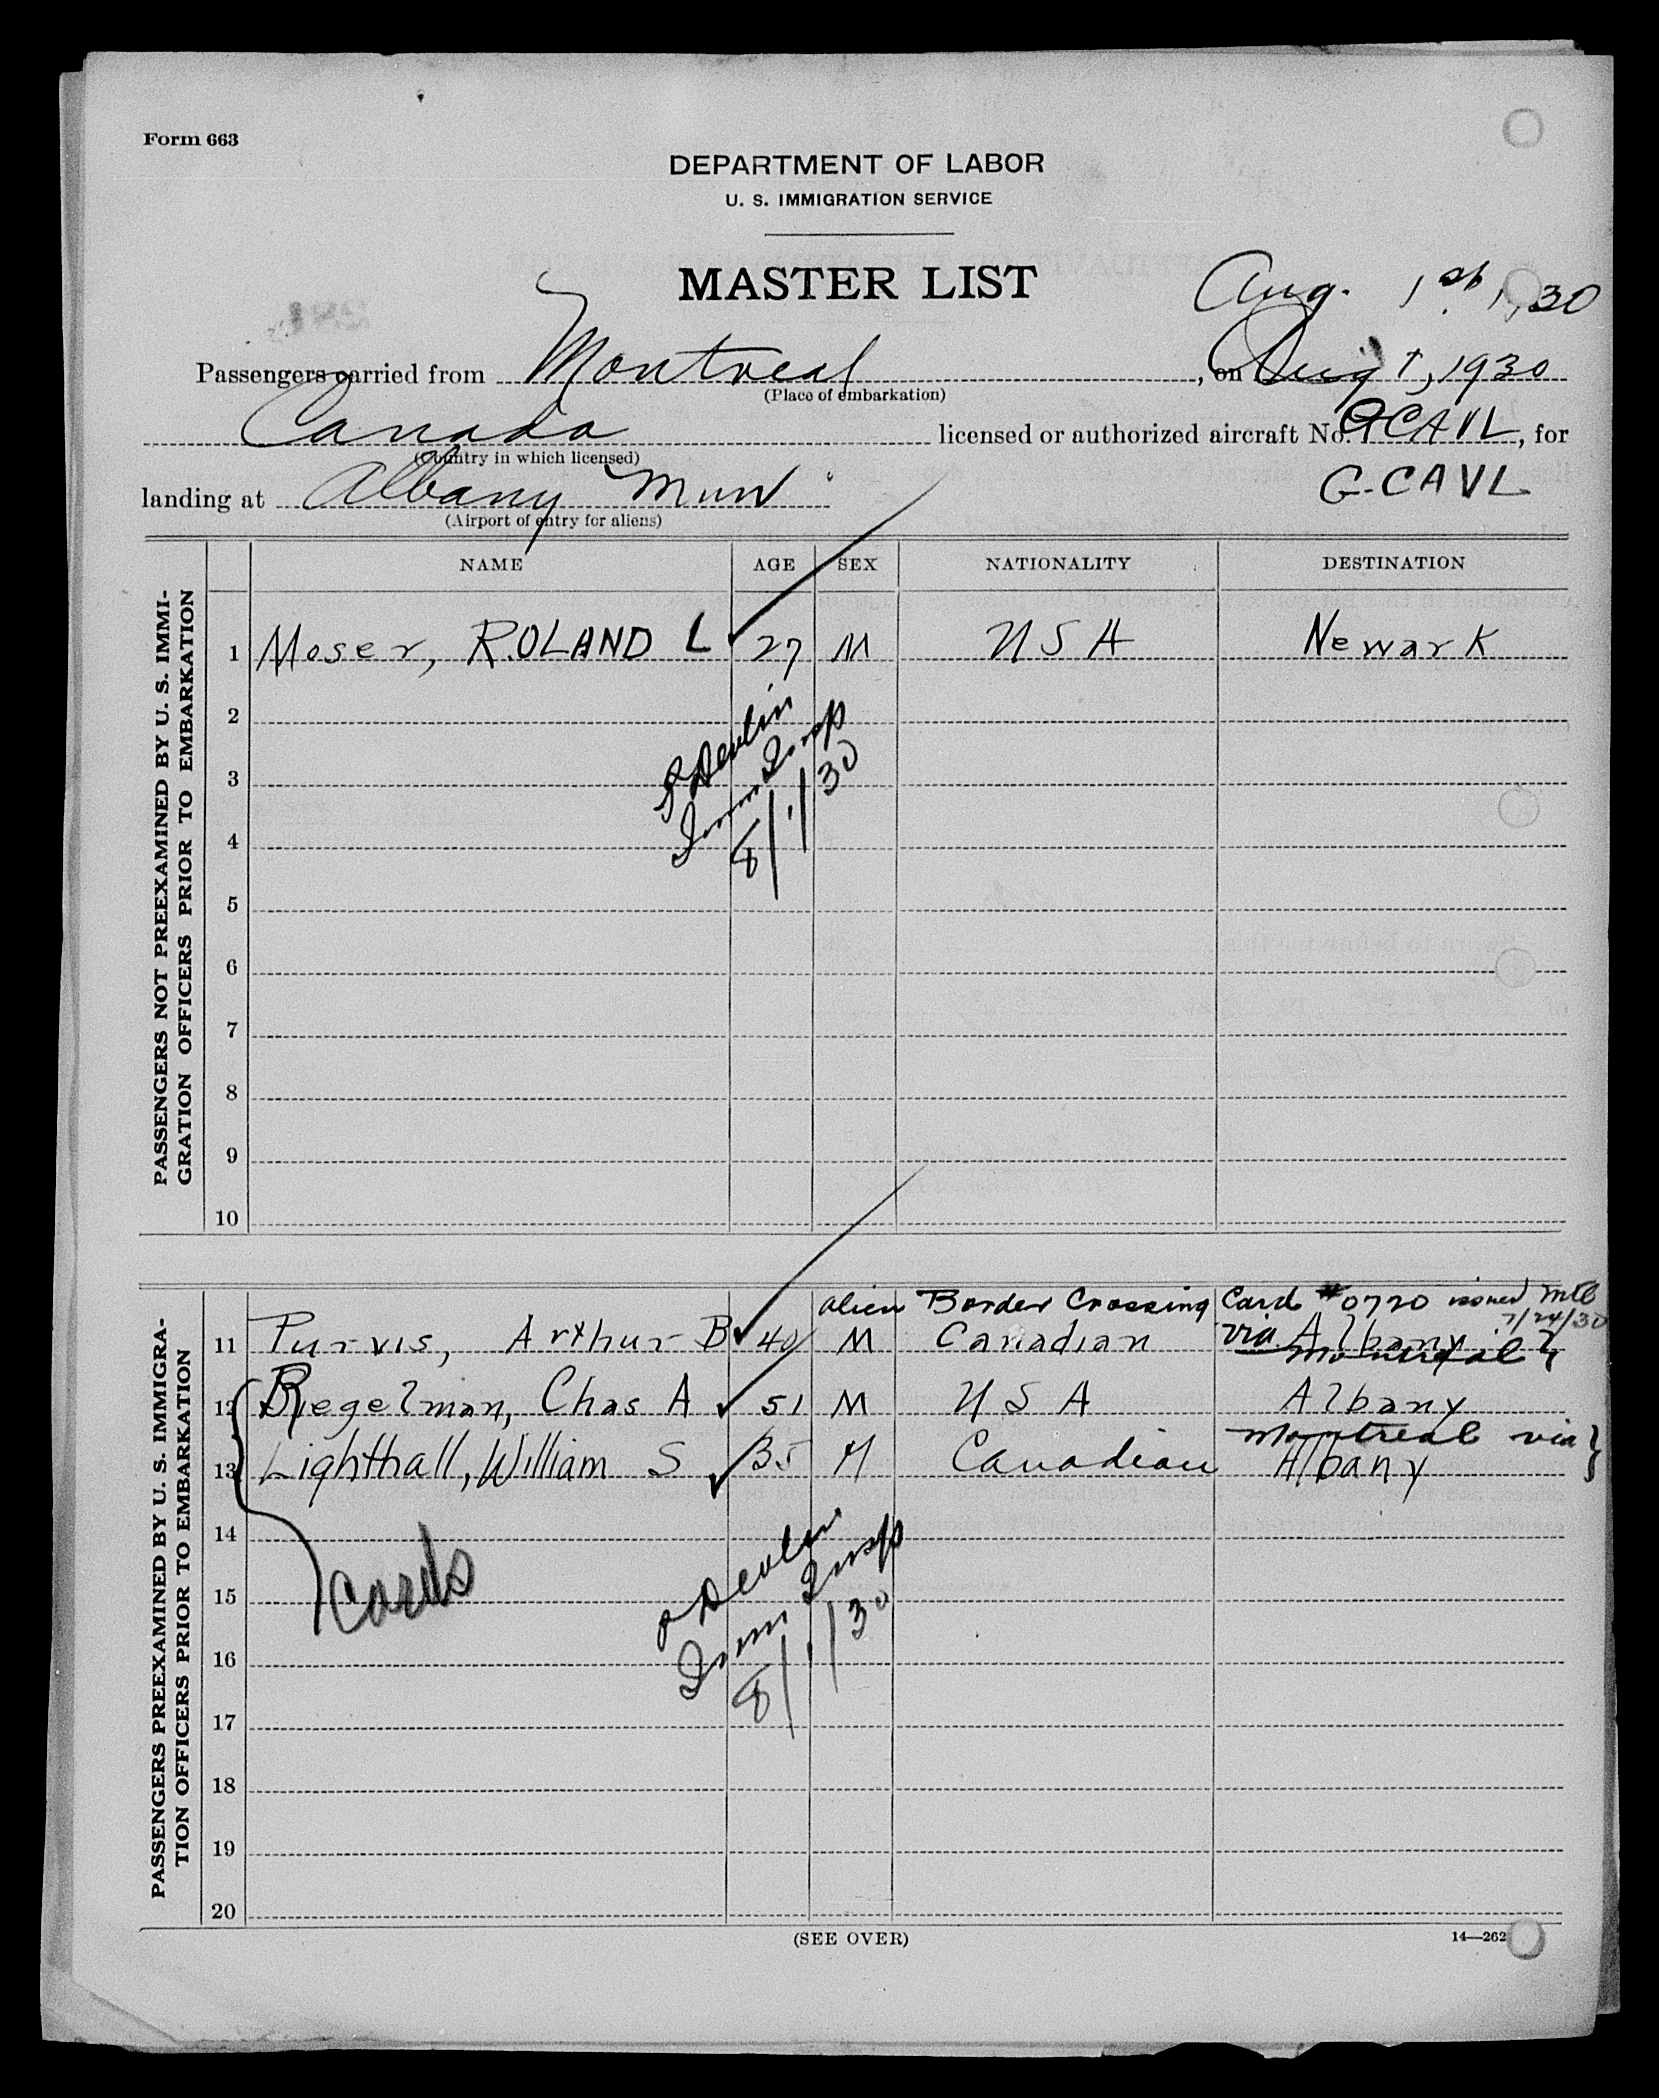 Form 663
DEPARTMENT OF LABOR
U. S. IMMIGRATION SERVICE
MASTER LIST
Aug. 1st, 30
Passengers carried from Montreal, on Aug 1, 1930
(Place of embarkation)
Canada licensed or authorized aircraft No. GCAVL, for
(Country in which licensed)
G-CAVL
landing at Albany Mun
(Airport of entry for aliens)
NAME AGE SEX NATIONALITY DESTINATION
PASSENGERS NOT PREEXAMINED BY U. S. IMMI-
GRATION OFFICERS PRIOR TO EMBARKATION
1 Moser, ROLAND L 27 M USA Newark
2
3
4
5
6
7
8
9
10
Devlin
Imm Insp
8/1/30
PASSENGERS PREEXAMINED BY U. S. IMMIGRA-
TION OFFICERS PRIOR TO EMBARKATION
alien Border Crossing Card #0720 issued Mtl
7/24/30
11 Purvis, Arthur B 40 M Canadian via Albany
Montreal
12 Riegelman, Chas A 51 M USA Albany
Montreal via
13 Lighthall, William S 35 M Canadian Albany
14
15
16
17
18
19
20
Cards
Devlin
Imm Insp
8/1/30
(SEE OVER)
14—262